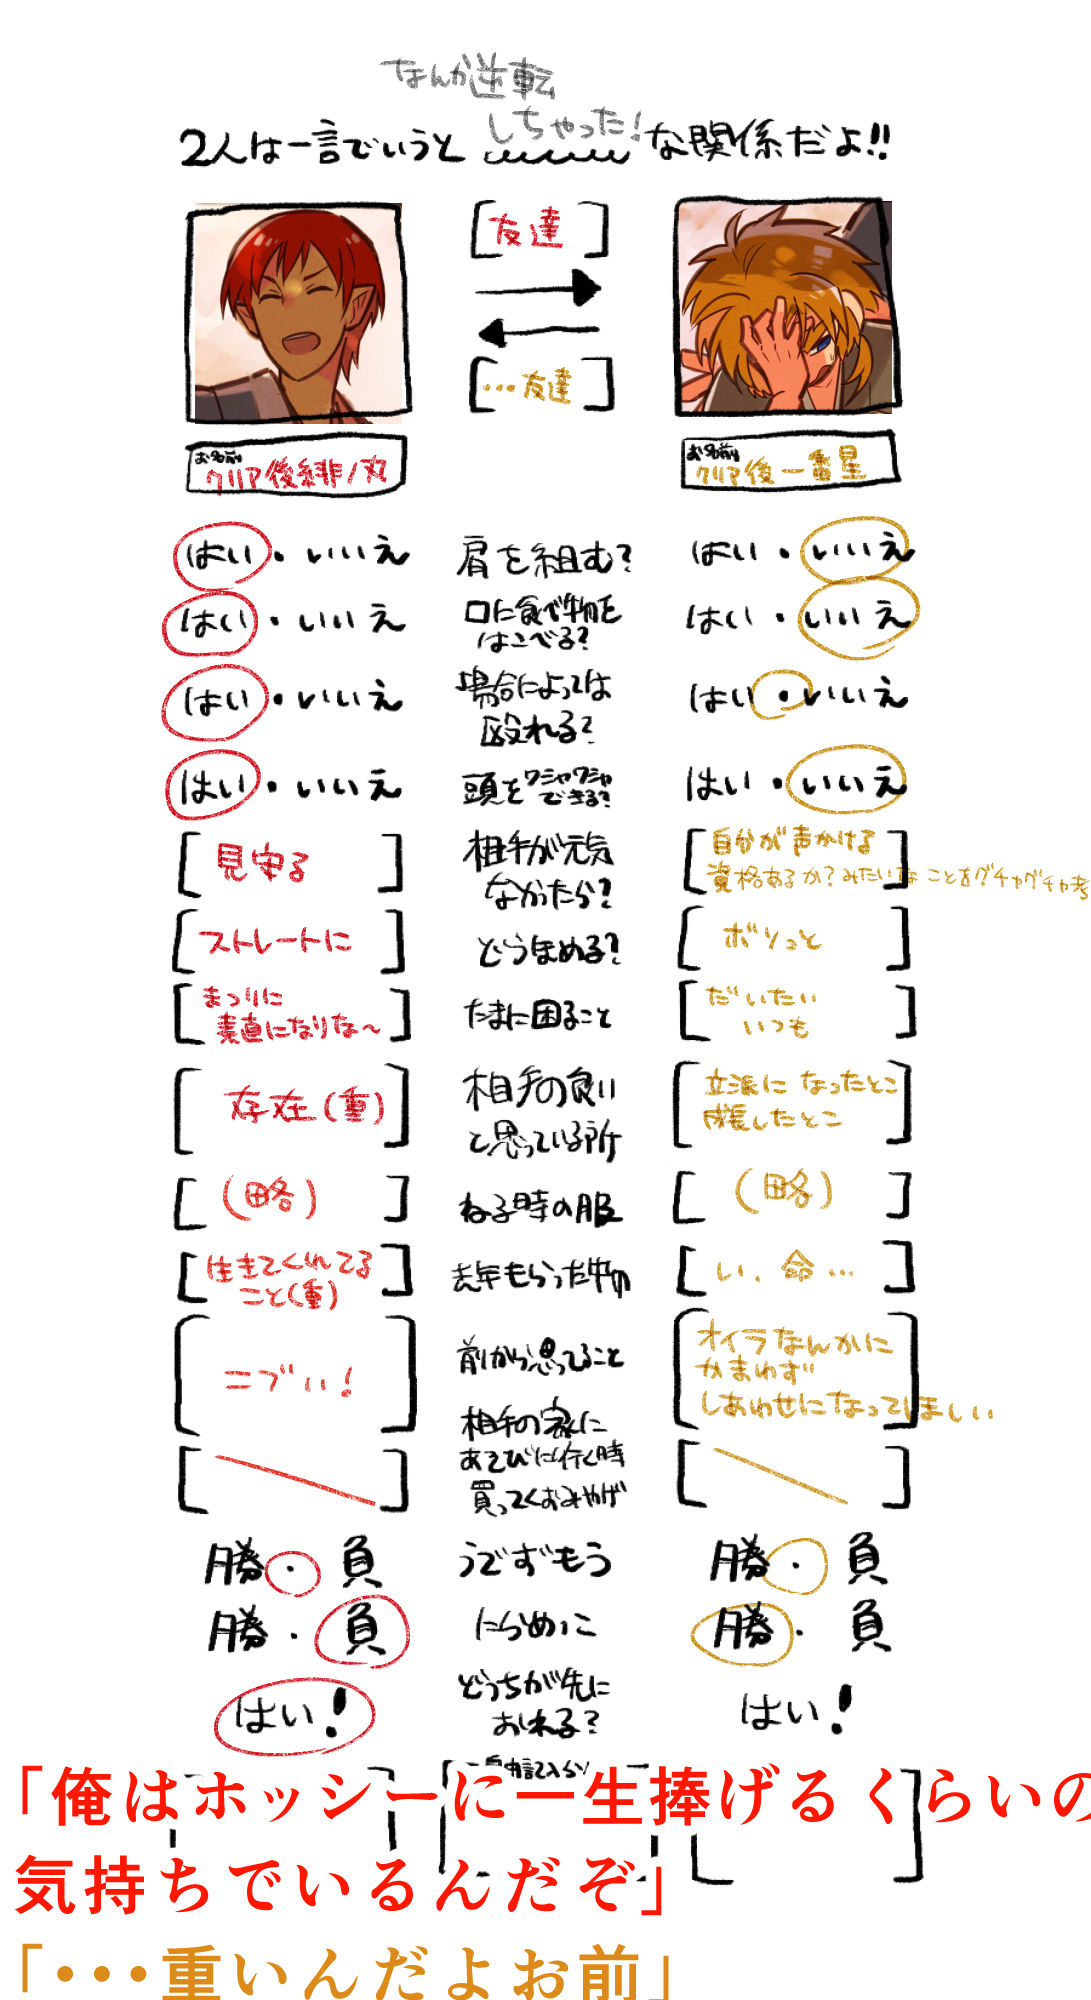 なんか逆転
しちゃった!
2人は一言でいうと な関係だよ!!
[友達]
[…友達]
お名前 クリア後緋ノ丸
お名前 クリア後一番星
はい・いいえ 肩を組む? はい・いいえ
はい・いいえ 口に食べ物を はい・いいえ
はこべる?
はい・いいえ 場合によっては はい・いいえ
殴れる?
はい・いいえ 頭をワシャワシャ はい・いいえ
できる?
[見守る] 相手が元気 [自分が声かける
なかったら? 資格あるか?みたいなことをグチャグチャ考]
[ストレートに] どうほめる? [ボソっと]
[まっつりに たまに困ること [だいたい
素直になりな〜] いつも]
[存在(重)] 相手の良い [立派になったとこ
と思っている所 成長したとこ]
[(略)] ねる時の服 [(略)]
[生きてくれてる 去年もらった物 [い、命…]
こと(重)]
[ニブい!] 前から思ってること [オイラなんかに
かまわず
しあわせになってほしい]
相手の家に
あそびに行く時
買ってくおみやげ
勝・負 うでずもう 勝・負
勝・負 にらめっこ 勝・負
はい! どっちが先に はい!
おれる?
「俺はホッシーに一生捧げるくらいの
気持ちでいるんだぞ」
「・・・重いんだよお前」